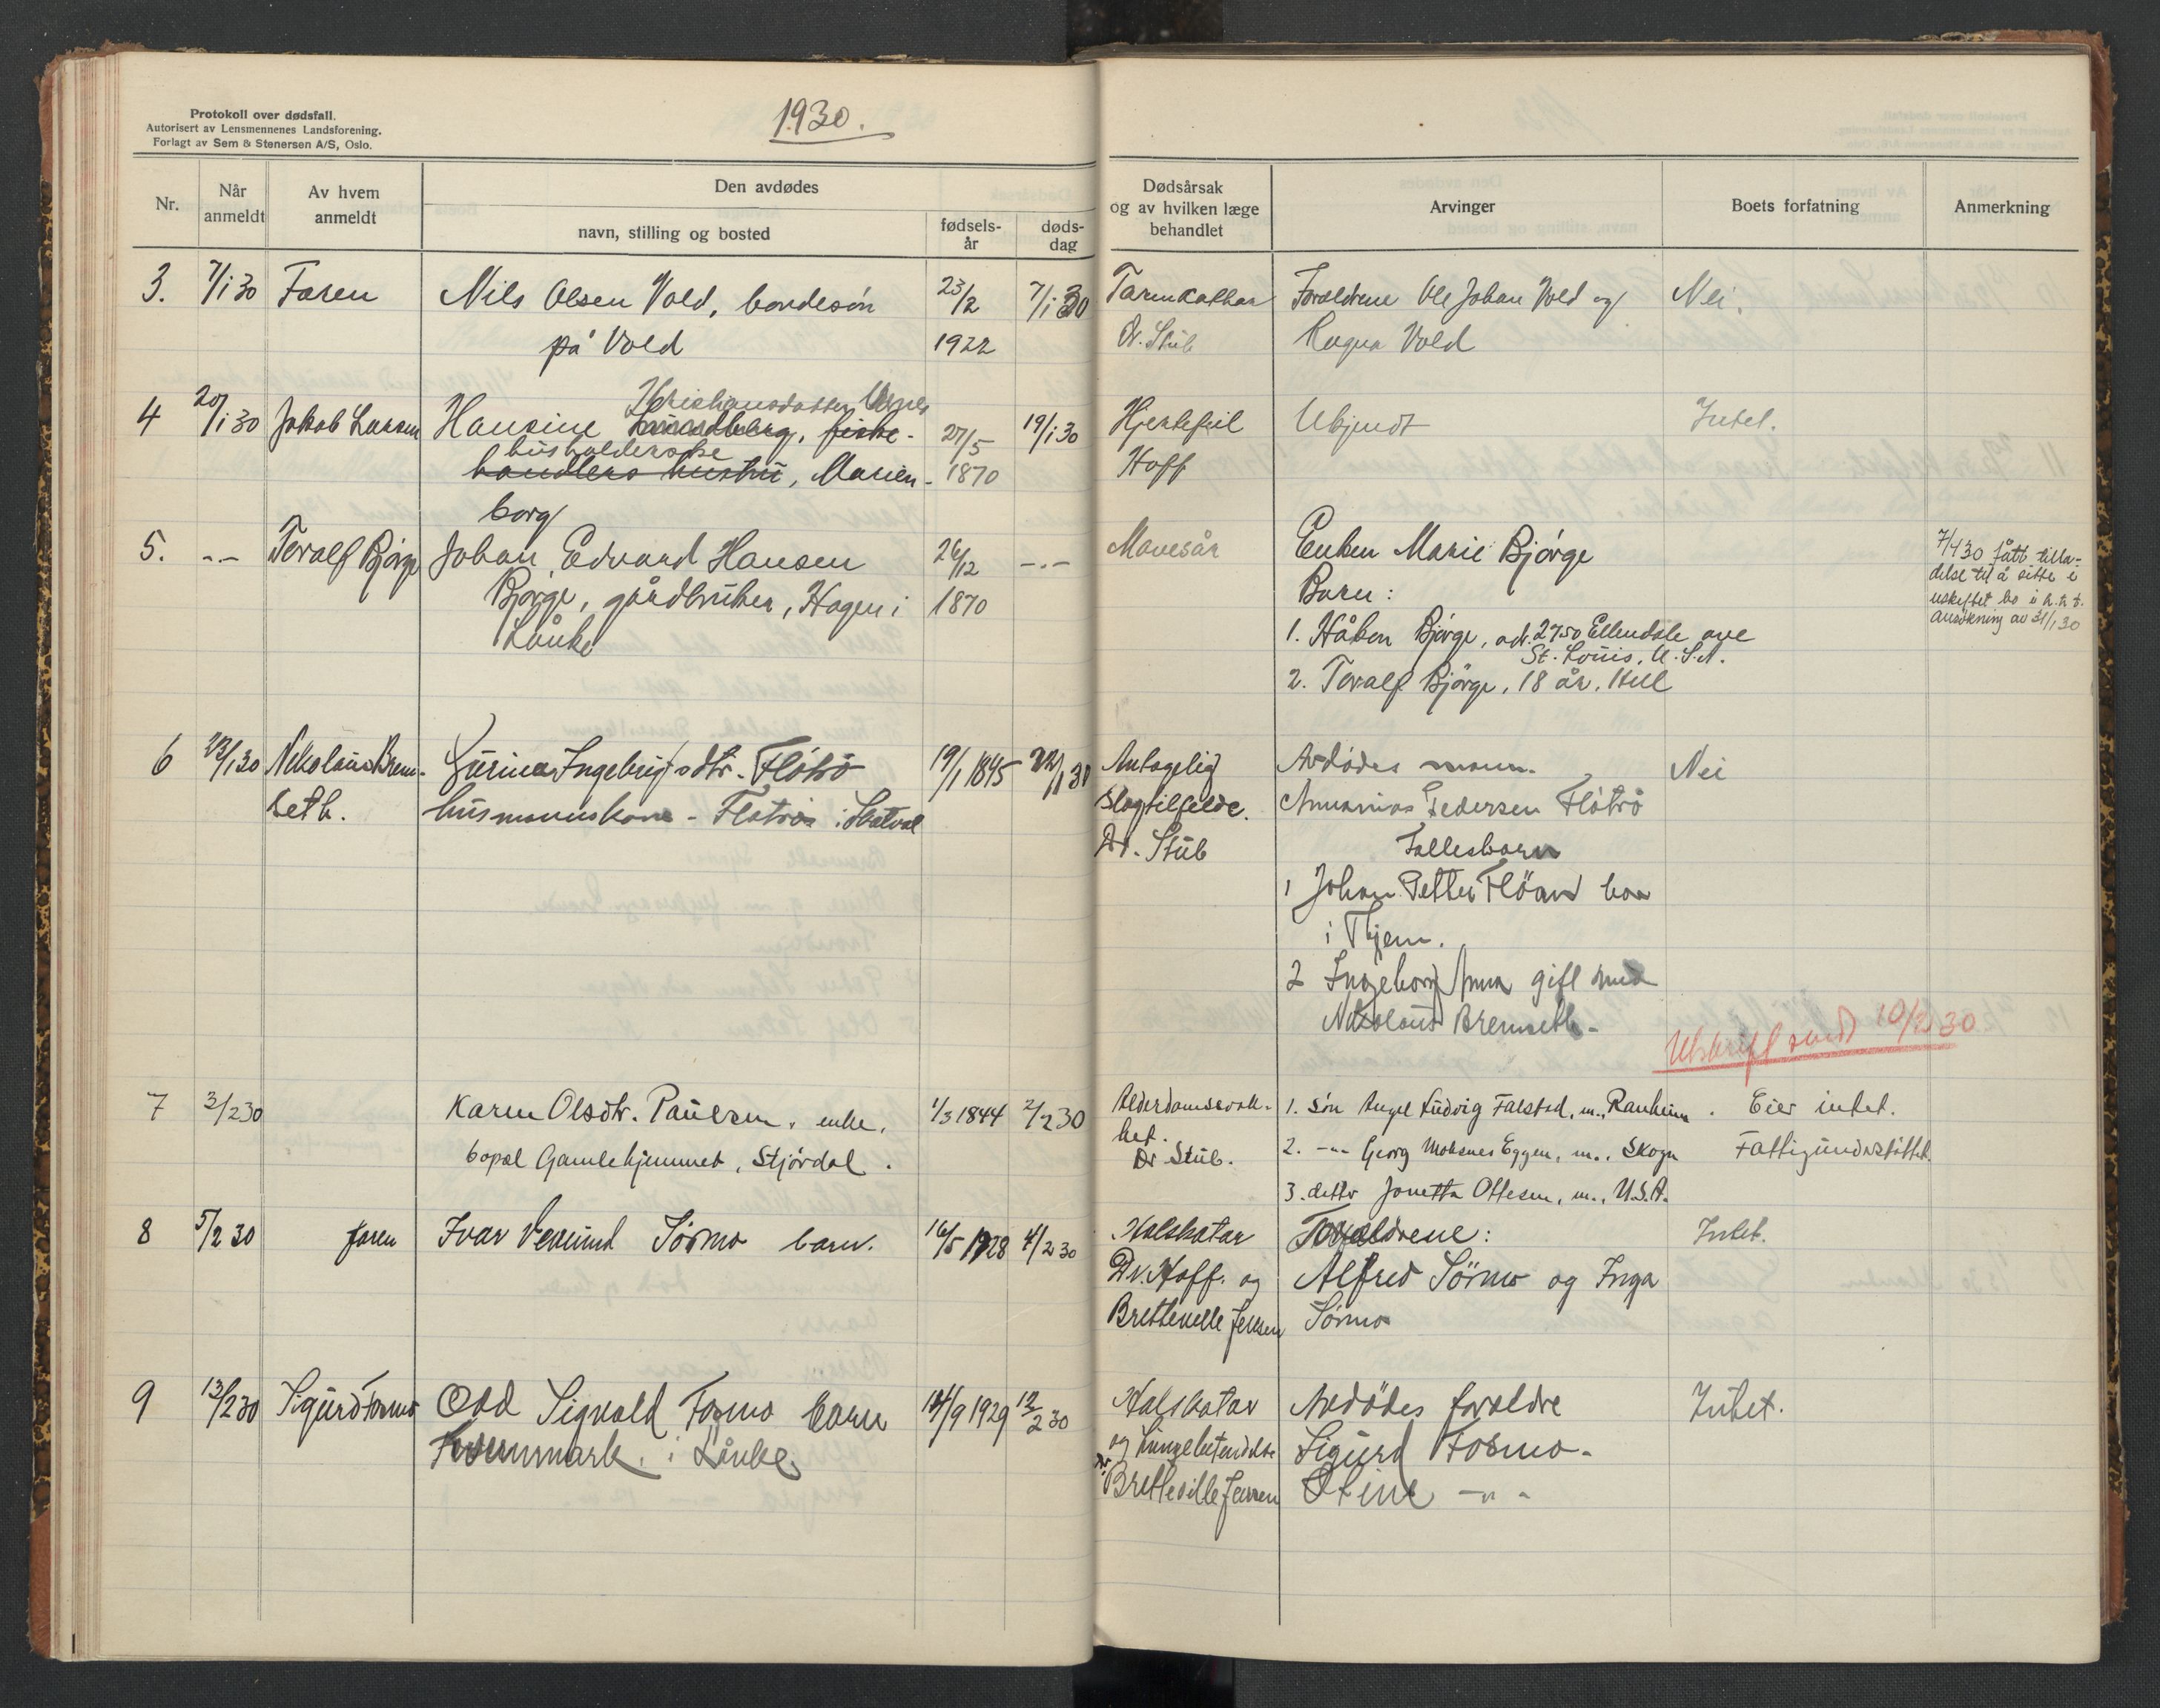 Protokoll over dødsfall.
Autorisert av Lensmennenes Landsforening.
Forlagt av Sem & Stenersen A/S, Oslo.
1930.
Nr.
Når anmeldt
Av hvem anmeldt
Den avdødes
navn, stilling og bosted
fødsels-år
døds-dag
Dødsårsak og av hvilken læge behandlet
Arvinger
Boets forfatning
Anmerkning
3. 7/1 30 Faren Nils Olsen Vold, bondesön 23/2 7/1 30 Tarmkatharr Foreldrene Ole Johan Vold og Nei.
på Vold 1922 Dr. Stüb Ragna Vold
Kristiansdatter Værnes
4 20/1 30 Jakob Larsen Hansine Strandberg, fiske- 27/5 19/1 30 Hjertefeil Ukjendt Intet.
husholderske
handlers hustru, Marien- 1870 Hoff
borg
5. -"- Toralf Bjørge Johan Edvard Hansen 26/12 -"- Mavesår Enken Marie Bjørge
Bjørge, gårdbruker, Hagen i 1870 Barn:
Lånke 1. Håkon Bjørge, adr. 2750 Ellendale ave
St. Louis, U.S.A.
2. Toralf Bjørge, 18 år, Hell
7/4 30 fått tilla-
delse til å sitte i
uskiftet bo i h. t. t.
ansökning av 31/1 30
6 23/1 30 Nikolaus Brem- Gurine Ingebrigtsdtr. Flötrö 19/1 1845 22/1 30 Antagelig Avdödes mann. Nei
seth. husmannskone - Flötrö i Skatval slagtilfelde. Annanias Pedersen Flötrö
Dr. Stüb Fellesbarn
1 Johan Petter Flöan boa
i Thjem.
2 Ingeborg Anna gift med
Nikolaus Bremseth-
Utskrift sendt 10/2 30
7 3/2 30 Karen Olsdtr. Paulsen, enke, 1/3 1844 2/2 30 Alderdomssvak- 1. Sön Angel Ludvig Falstad, m., Ranheim. Eier intet.
bopæl Gamlehjemmet, Stjördal. het. 2. -"- Georg Moksnes Eggen, m., Skogn Fattigunderstöttet.
Dr. Stüb. 3. dette Jonetta Ottesen, m., U.S.A.
8 5/2 30 faren Ivar Vemund Sörmo barn. 16/5 1928 4/2 30 Halskatar Foreldrene: Intet.
Dr. Hoff. og Alfred Sörmo og Inga
Bretteville Jensen Sörmo
9 13/2 30 Sigurd Fosmo Odd Sigvald Fosmo barn 14/9 1929 12/2 30 Halskatar Avdödes foreldre Intet.
i Lånke og Lungebetendelse Sigurd Fosmo-
Dr. Bretteville Jensen Stine -"-